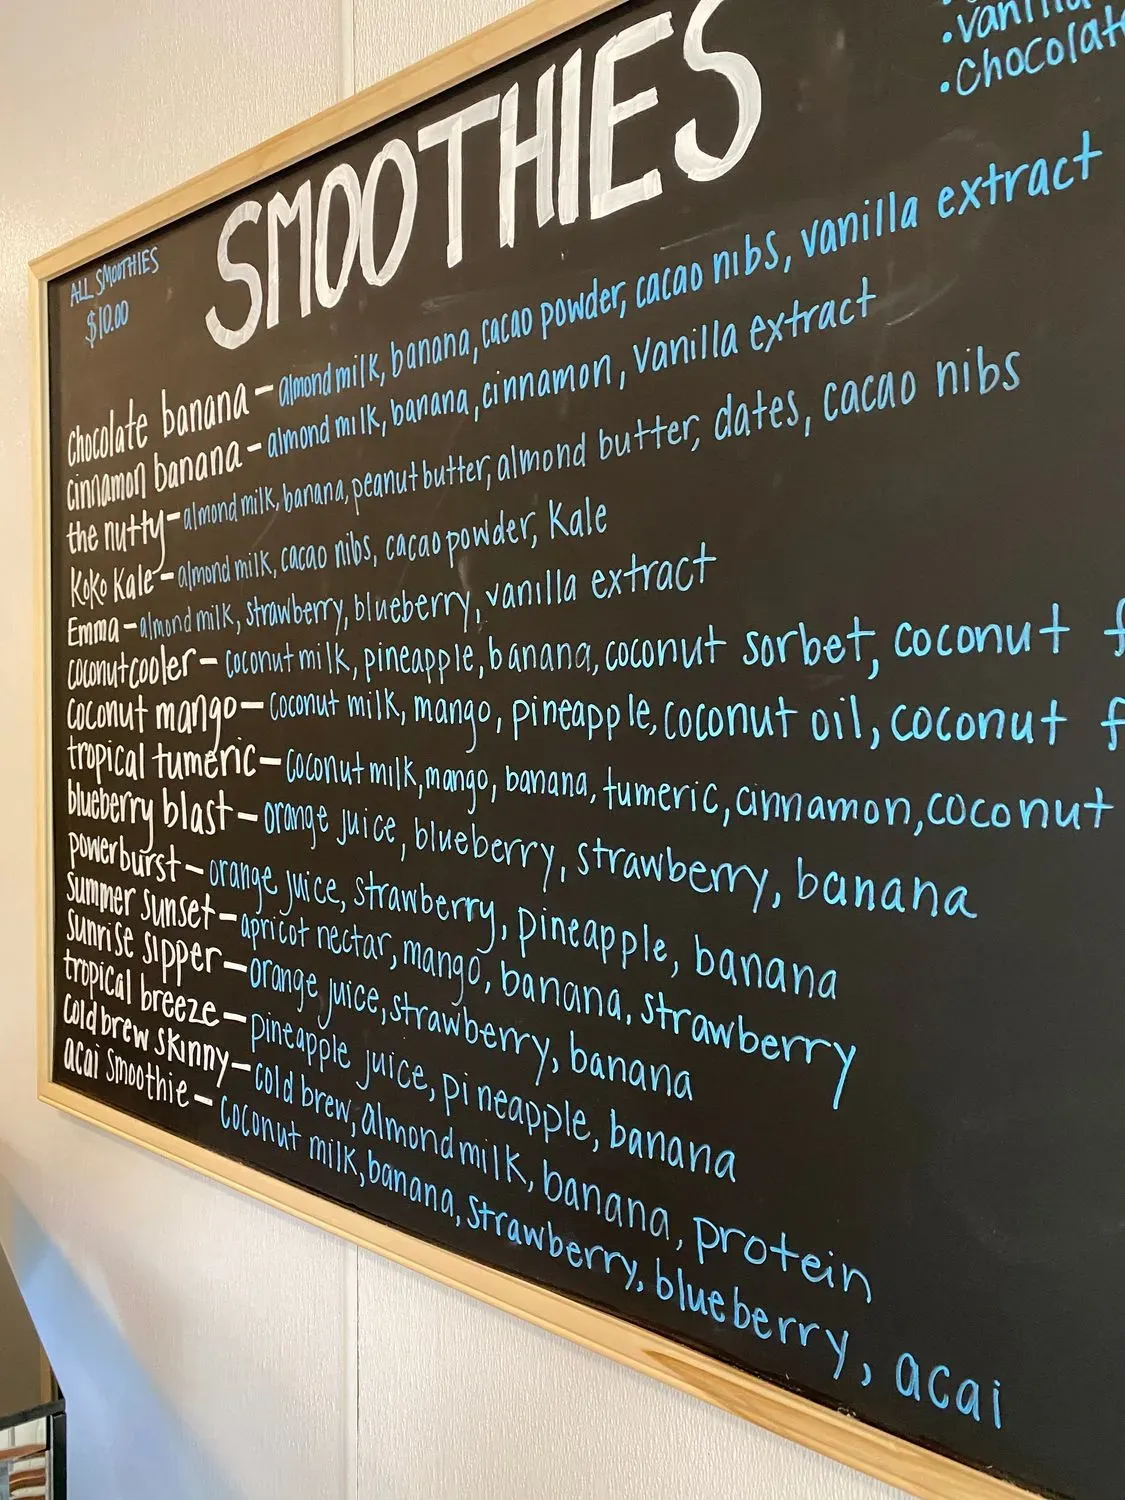 SMOOTHIES
• vanilla
• chocolate
ALL SMOOTHIES
$10.00
chocolate banana - almond milk, banana, cacao powder, cacao nibs, vanilla extract
cinnamon banana - almond milk, banana, cinnamon, vanilla extract
the nutty - almond milk, banana, peanut butter, almond butter, dates, cacao nibs
Koko Kale - almond milk, cacao nibs, cacao powder, Kale
Emma - almond milk, strawberry, blueberry, vanilla extract
coconut cooler - coconut milk, pineapple, banana, coconut sorbet, coconut
coconut mango - coconut milk, mango, pineapple, coconut oil, coconut
tropical tumeric - coconut milk, mango, banana, tumeric, cinnamon, coconut
blueberry blast - orange juice, blueberry, strawberry, banana
powerburst - orange juice, strawberry, pineapple, banana
summer sunset - apricot nectar, mango, banana, strawberry
sunrise sipper - orange juice, strawberry, banana
tropical breeze - pineapple juice, pineapple, banana
cold brew skinny - cold brew, almond milk, banana, protein
acai smoothie - coconut milk, banana, strawberry, blueberry, acai